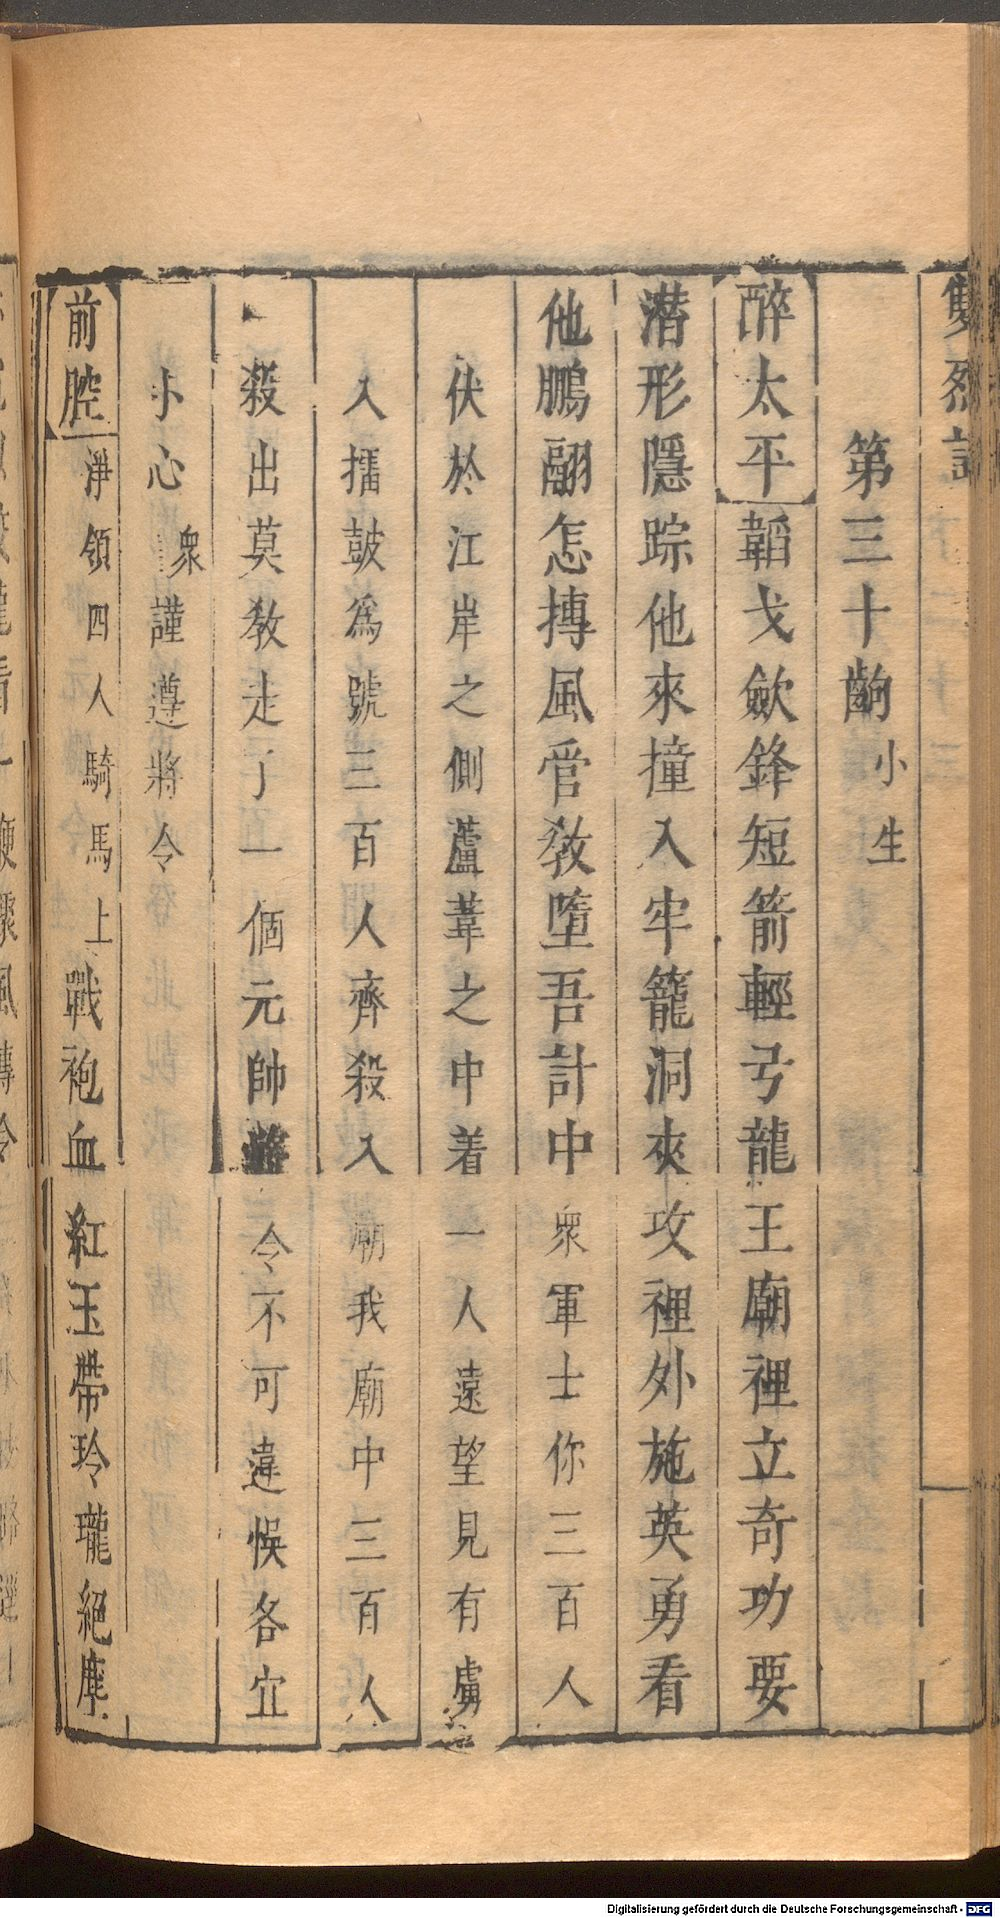 雙烈記
第三十齣 小生
醉太平 韜戈歛鋒短箭輕弓龍王廟裡立奇功要
潛形隱踪他來撞入牢籠洞夾攻裡外施英勇看
他鵬翮怎摶風管教墮吾計中 衆軍士你三百人
伏於江岸之側蘆葦之中着一人遠望見有虜
入擂鼓爲號三百人齊殺入廟我廟中三百人
殺出莫教走了一個元帥將令不可違悞各宜
小心 衆謹遵將令
前腔 淨領四人騎馬上戰袍血紅玉帶玲瓏絕塵
Digitalisierung gefördert durch die Deutsche Forschungsgemeinschaft - DFG